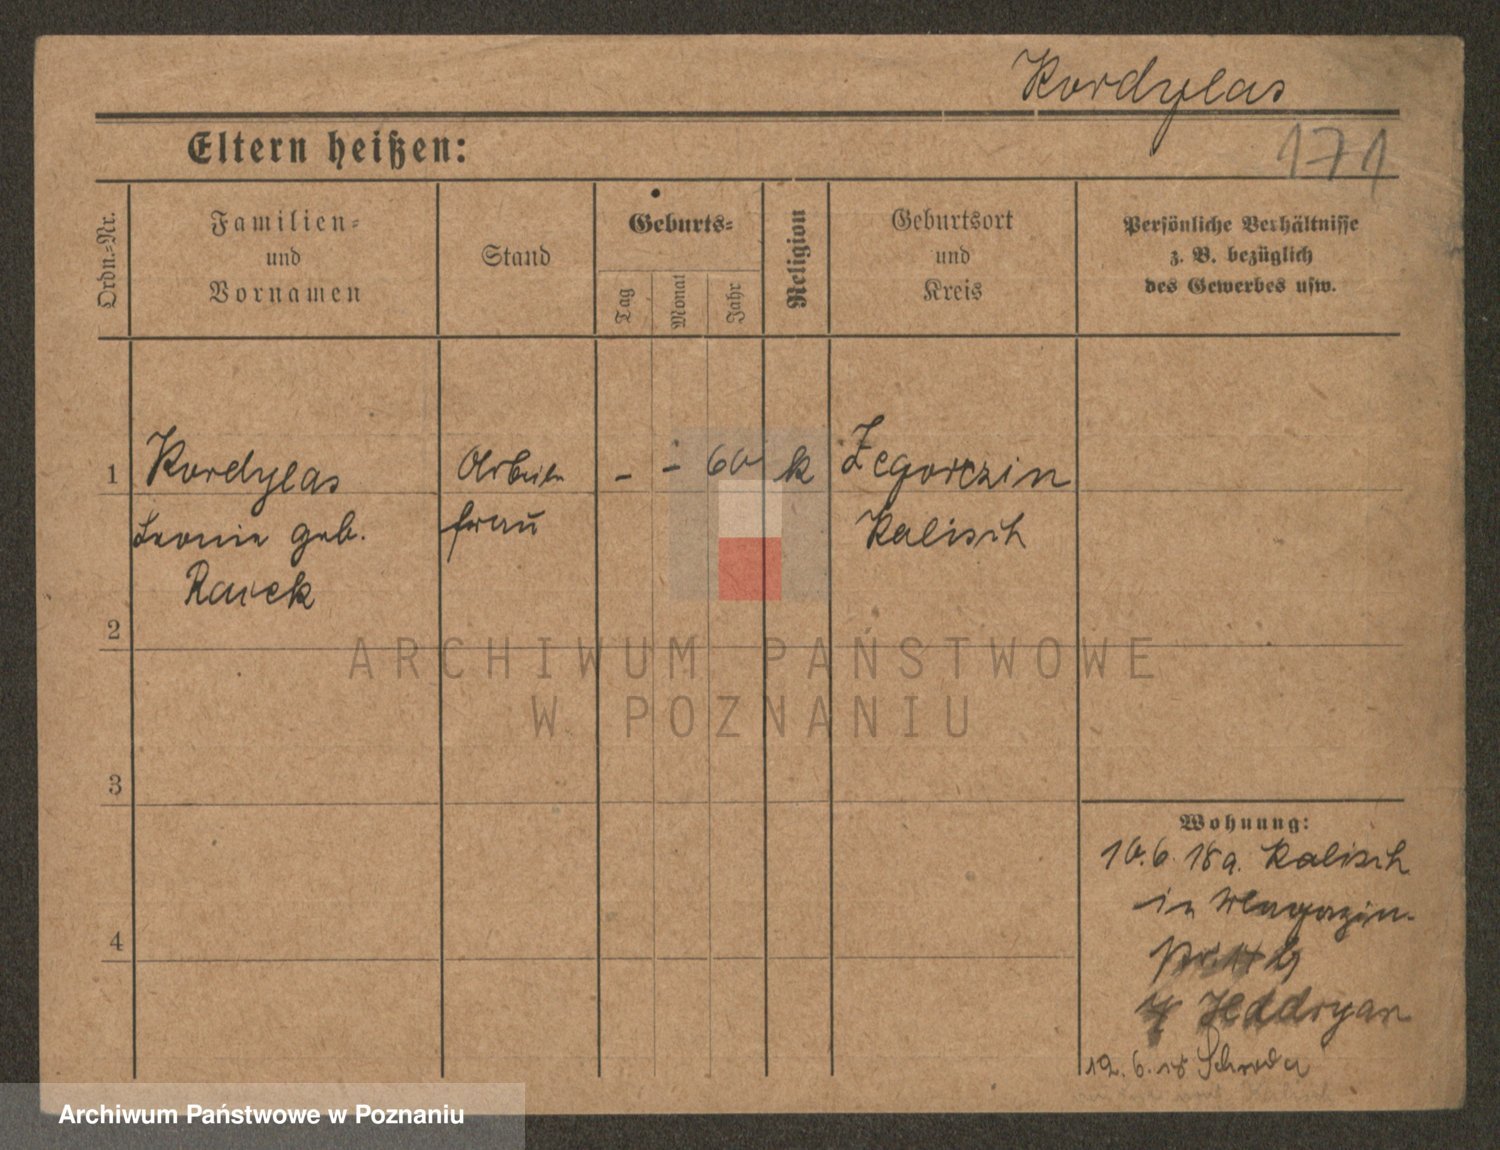 Kordylas
171
Eltern heißen:
Ordn.-Nr.
Familien-
und
Vornamen
Stand
Geburts-
Tag
Monat
Jahr
Religion
Geburtsort
und
Kreis
Persönliche Verhältnisse
z. B. bezüglich
des Gewerbes usw.
1
Kordylas
Leonie geb.
Raiek
Arbeiter
frau
- - 60
k
Zegorczin
Kalisch
2
3
4
Wohnung:
10.6.18 a. Kalisch
in Magazin.
12.6.18 Schroda
ARCHIWUM PAŃSTWOWE
W POZNANIU
Archiwum Państwowe w Poznaniu